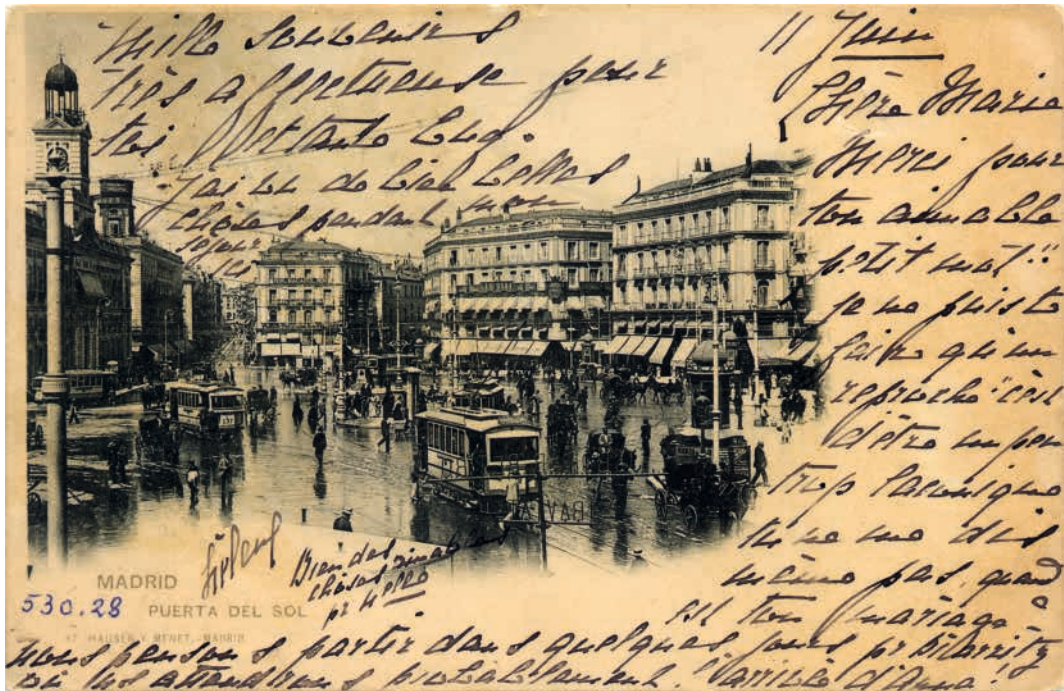 11 Juin
Chère Marie
Merci pour
ton aimable
petit mot!!
je ne puis te
faire qu'un
reproche c'est
d'être un peu
trop laconique
tu ne me dis
même pas, quand
est ton mariage
nous pensons partir dans quelques jours pr Biarritz
où nous attendrons probablement l'arrivée d'Anna.
Mille souvenirs
très affectueuse pour
toi et tante
J'ai vu de bien belles
choses pendant mon
séjour
ici
Hélène
Bien des
choses aimables
pr
MADRID
PUERTA DEL SOL
530.28
17 HAUSER Y MENET.-MADRID